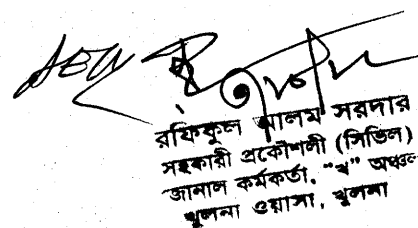 রফিকুল আলম সরদার
সহকারী প্রকৌশলী (সিভিল)
জোনাল কর্মকর্তা, "খ" অঞ্চল
খুলনা ওয়াসা, খুলনা